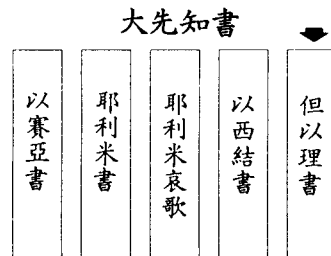 大先知書
以賽亞書
耶利米書
耶利米哀歌
以西結書
但以理書